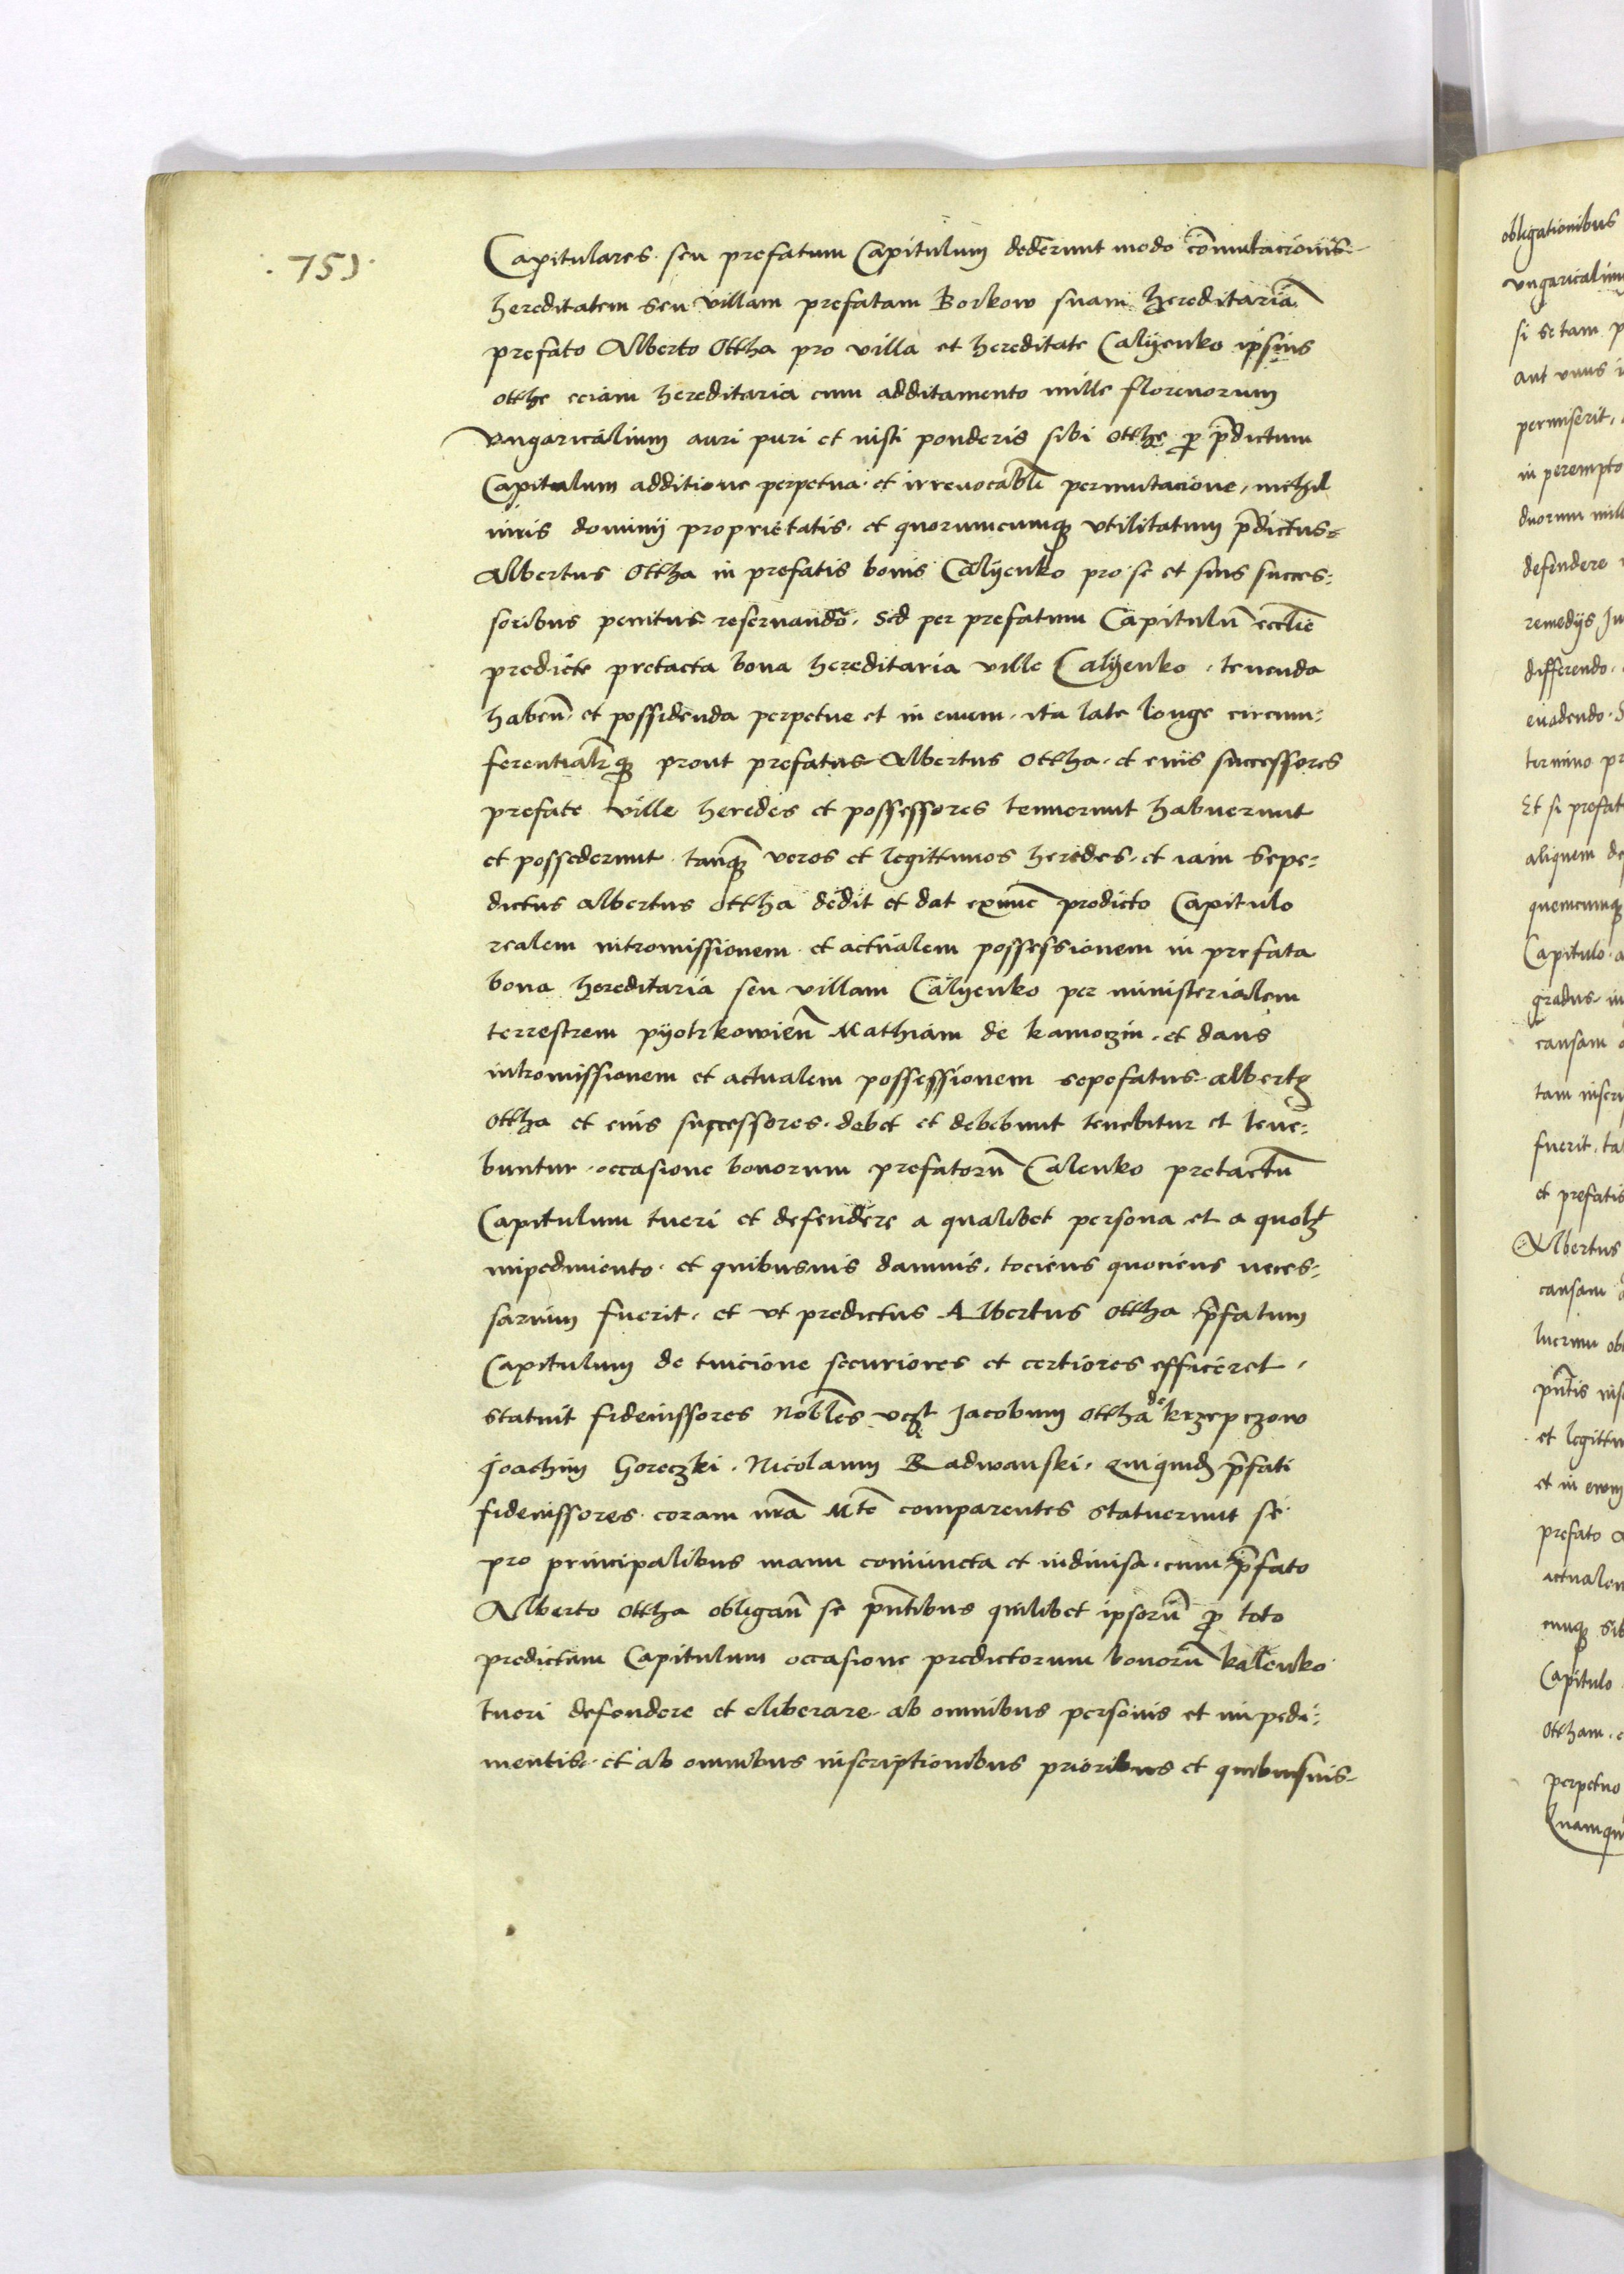 .751.
Capitulares seu prefatum Capitulum dederunt modo com̄utacionis
hereditatem seu villam prefatam Borkow suam hereditariā
prefato Alberto Ottha pro villa et hereditate Calyenko ipsius
otthe eciam hereditaria cum additamento mille florenorum
vngaricalium auri puri et iusti ponderis sibi otthe ꝑ p̄dictum
Capitulum additione perpetua et irreuocabli permutacione, nichil
iuris dominij proprietatis et quorumcumqȝ vtilitatum p̄dictus
Albertus Ottha in prefatis bonis Calyenko pro se et suis succes:
soribus penitus reseruando. Sed per prefatum Capitulū eccl̄ie
predicte pretacta bona hereditaria ville Calyenko tenenda
haben̄ et possidenda perpetue et in euum ita late longe circum:
ferentialrqȝ prout prefatus Albertus Ottha et eius successores
prefate ville heredes et possessores tenuerunt habuerunt
et possederunt tanqȝ veros et legittimos heredes. et iam sepe:
dictus albertus ottha dedit et dat exnūc predicto Capitulo
realem intromissionem et actualem possessionem in prefata
bona hereditaria seu villam Calyenko per ministerialem
terrestrem pyotrkowien̄ Mathiam de kamoczin. et dans
intromissionem et actualem possessionem sepefatus albertꝫ
ottha et eius successores debet et debebunt tenebitur et tene:
buntur occasione bonorum prefatorū Calenko pretactū
Capitulum tueri et defendere a qualibet persona et a quolȝt
impedimento et quibusuis damnis tociens quociens neces:
sarium fuerit. et vt predictus Albertus ottha p̄fatum
Capitulum de tuicione securiores et certiores efficeret
statuit fideiussores Nobles vcȝt Jacobum ottha de krzepczow
Joachim Goreczki. Nicolaum Radwanski. Quiquidȝ p̄fati
fideiussores coram nr̄a Mte comparentes statuerunt se
pro principalibus manu coniuncta et indiuisa cum p̄fato
Alberto Ottha obligan̄ se pn̄tibus quilibet ipsorū ꝑ toto
predictum Capitulum occasione predictorum bonorū kalenko
tueri defendere et eliberare ab omnibus personis et impedi:
mentis et ab omnibus inscriptionibus prioribus et quibusuis
obligationibus
vngaricalium
si se tam
aut vnus
permiserit,
in perempto
duorum mill
defendere
remedijs Ju
differendo.
euadendo. S
termino pr
Et si prefat
aliquem de
quemcumqȝ
Capitulo a
gradus in
causam
tam inscri
fuerit. ta
et prefatis
Albertus
causam
lucrum ob
pn̄tis ins
et legitti
et in euum
prefato A
actualem
cumqȝ sib
Capitulo
Ottham. e
perpetuo
Quamqui